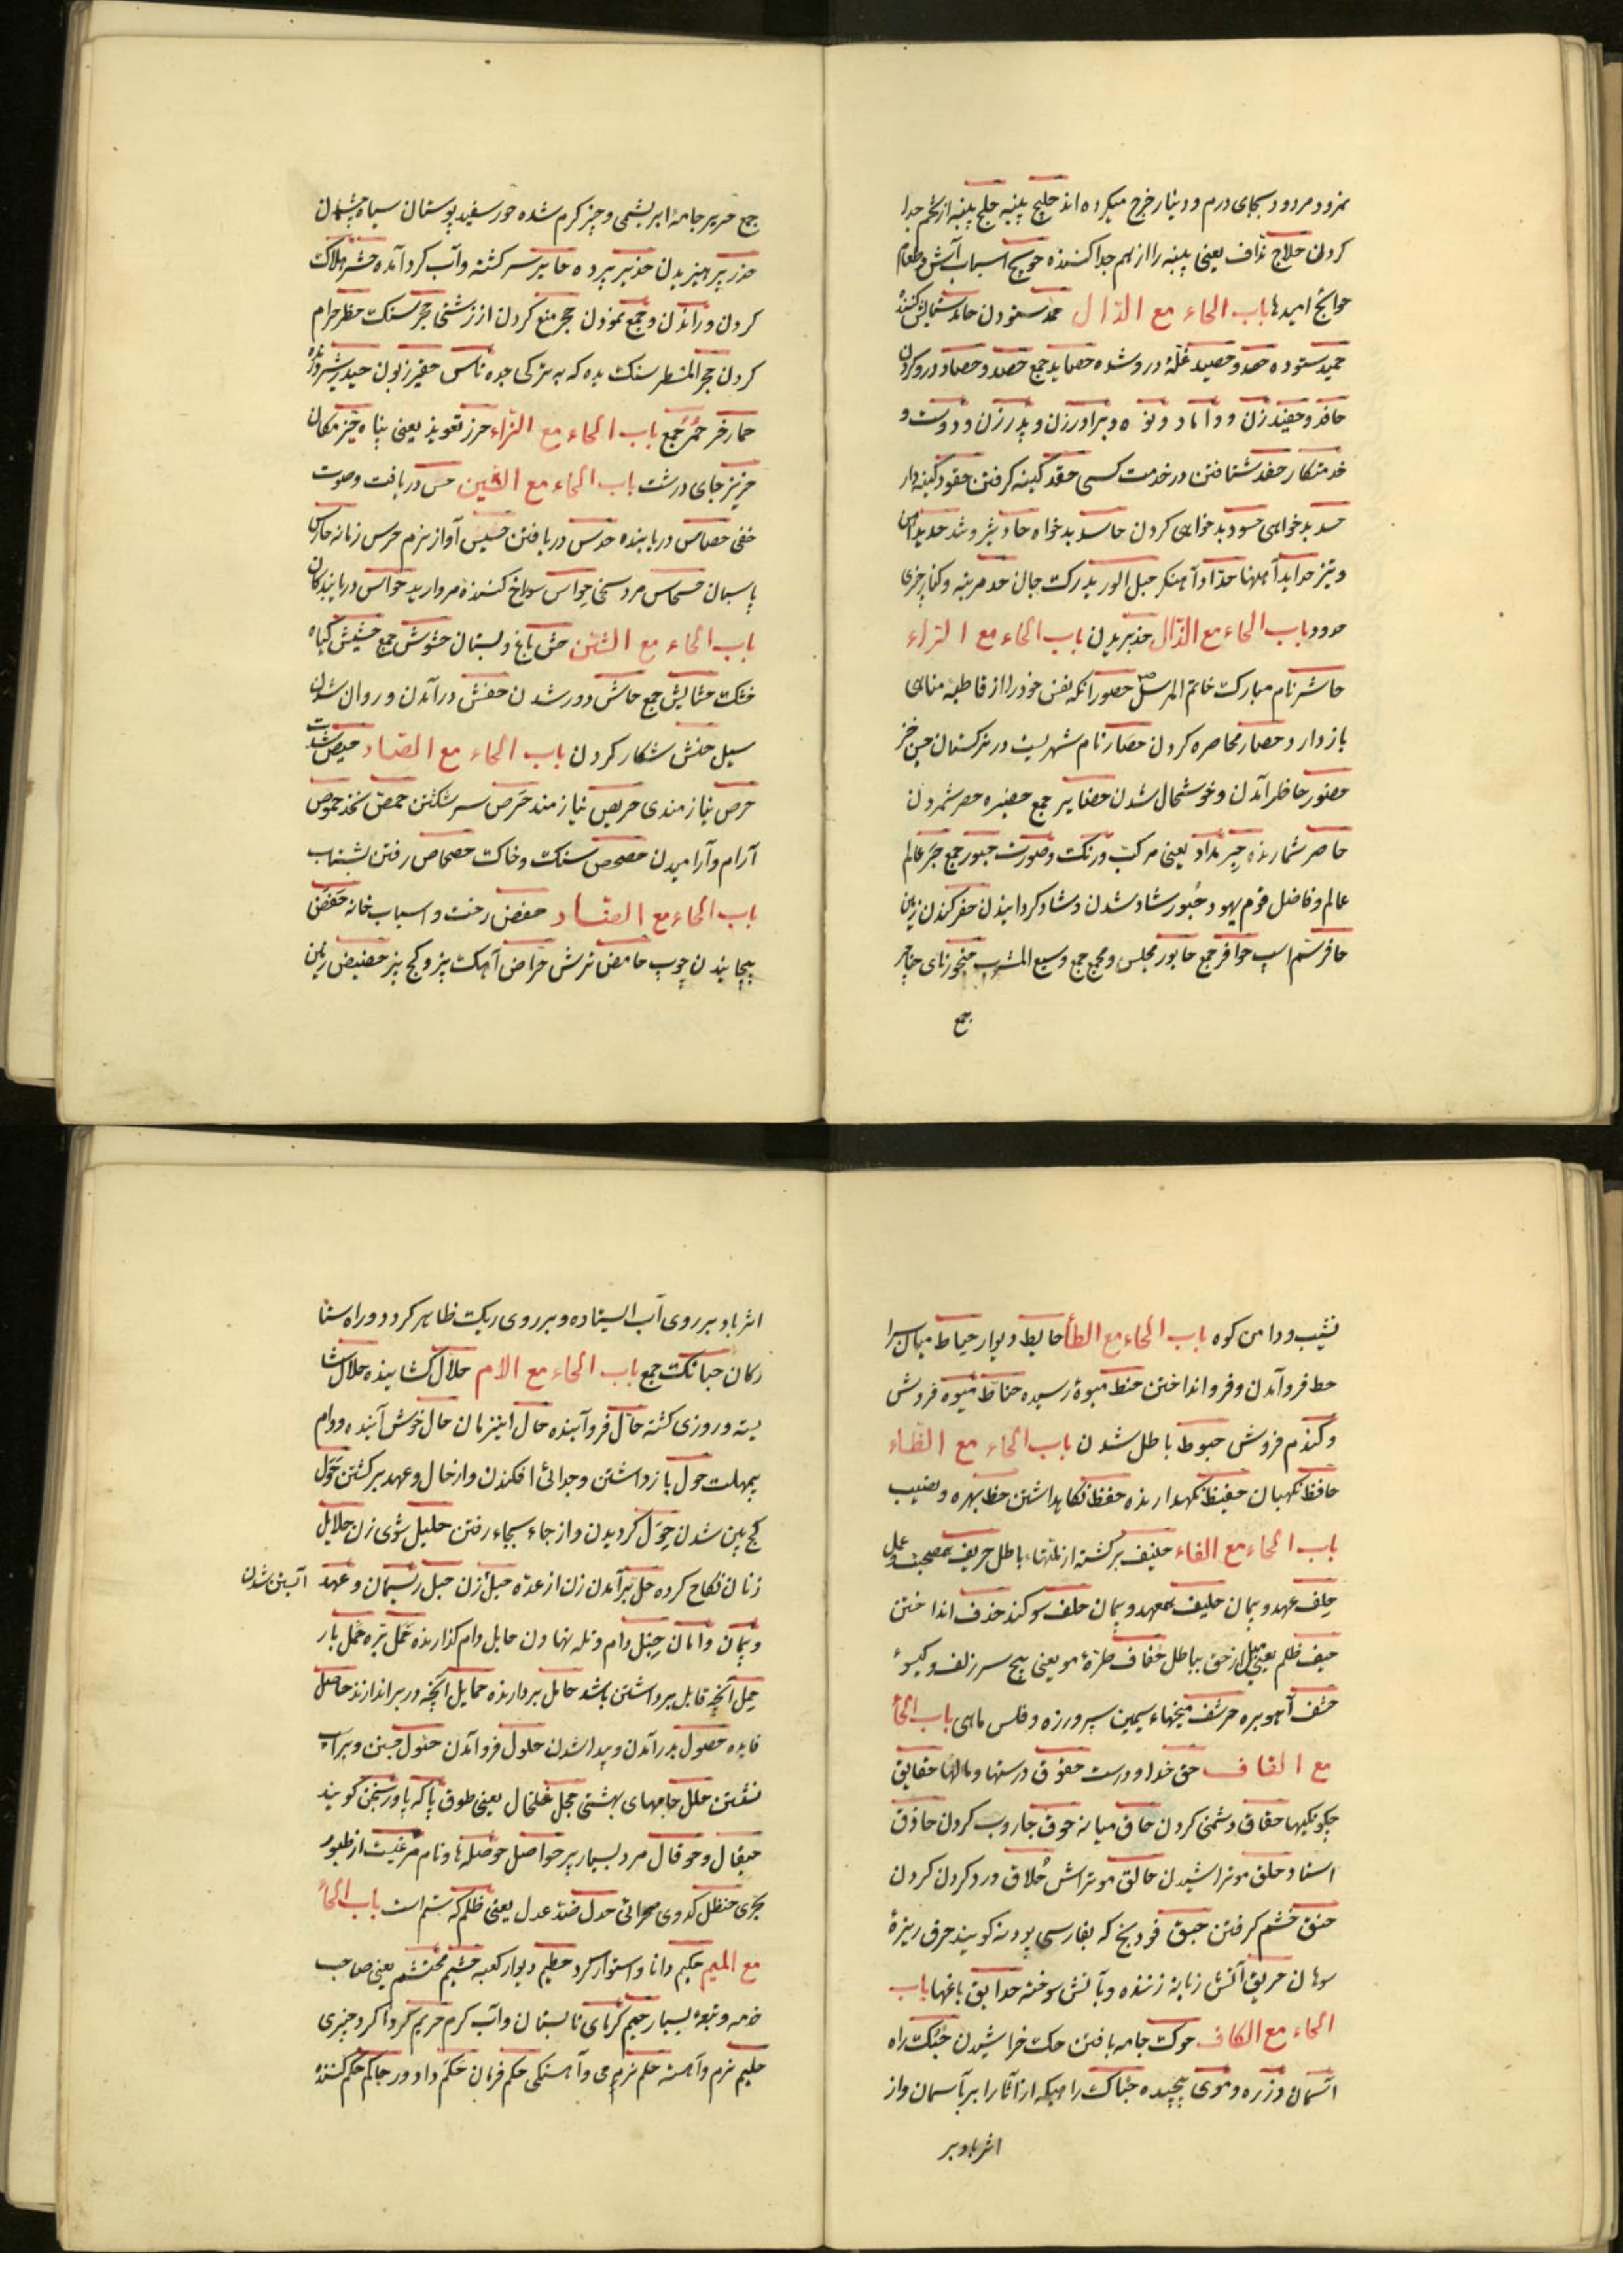 نمرود مردود بجای درم و دینار خرج میکرده اند حلیج پنبه حلج پنبه از تخم جدا
کردن حلاج نداف یعنی پنبه را از هم جدا کننده حویج اسباب آش و طعام
حوایج امیدها باب الحاء مع الدال حمد ستودن حامد ستایش کننده
حمید ستوده حصد و حصید غلۀ درو شده حصاید جمع حصد و حصاد درو کردن
حافد و حفید زن و داماد و نوه و برادر زن و پدر زن و دوست و
خدمتکار حفد شتافتن در خدمت کسی حقد کینه گرفتن حقود کینه دار
حسد بدخواهی حسود بدخواهی کردن حاسد بدخواه حاد تیز و تند حدید آهن
و تیز حداید آهنها حداد آهنگر حبل الورید رک جان حد مرتبه و کنار چیزی
حدود باب الحاء مع الذال حذ بریدن باب الحاء مع الراء
حاشر نام مبارک خاتم المرسل ص حصور آنکه نفس خود را از قاطبۀ مناهی
باز دارد حصار محاصره کردن حصار نام شهریست در ترکستان حسن خیز
حضور حاظر آمدن و خوشحال شدن حضایر جمع حضیره حصر شمردن
حاصر شمارنده حبر مداد یعنی مرکب و رنک و صورت حبور جمع حبر عالم
عالم و فاضل قوم یهود حبور شاد شدن و شاد کردانیدن حفر کندن زمین
حافر سم اسب حوافر جمع حابور مجلس و مجمع جمع وسیع المشرب حنجور نای حناجر
جمع
جمع حریر جامۀ ابریشمی و چیز کرم شده حور سفید پوستان سیاه چشمان
حذر پرهیزیدن حذیر پرده حایر سرکشته و آب کرد آمده حشر هلاک
کردن و راندن و جمع نمودن حجر منع کردن از زشتی حجر سنک حظر حرام
کردن حجر المنطر سنک یده که به ترکی جده تاس حقیر زبون حیدر شیر درنده
حمار خر حمر جمع باب الحاء مع الزاء حرز تعویذ یعنی پناه حیز مکان
حزیز جای درشت باب الحاء مع السین حس دریافت و صوت
خفی حصاس دریابنده حدس دریافتن حسیس آواز نرم حرس زمانه حارس
پاسبان حسحاس مرد سخی حواس سوراخ کننده مروارید حواس دریابندکان
باب الحاء مع الشین حش باغ و بستان حشوش جمع حشیش کیاه
خشک حشایش جمع حاش دور شدن حفش در آمدن و روان شدن
سیل حنش شکار کردن باب الحاء مع الصاد حیص شدت
حرص نیازمندی حریص نیازمند حرص سر شکستن حمص نخذ حموص
آرام و آرامیدن حصحص سنک و خاک حصحاص رفتن بشتاب
باب الحاء مع الضاد حفض رخت و اسباب خانه حفض
پیچانیدن چوب حامض ترش حراض آهک پز و کج پز حضیض زمین
نشیب و دامن کوه باب الحاء مع الطاء حایط دیوار حیاط میان سرا
حط فرو آمدن و فرو انداختن حنط میوۀ رسیده حناط میوه فروش
و کندم فروش حبوط باطل شدن باب الحاء مع الظاء
حافظ نکهبان حفیظ نکهدارنده حفظ نکاهداشتن حظ بهره و نصیب
باب الحاء مع الفاء حنیف برکشته از باطل حریف همصحبت و عمل
حلف عهد و پیمان حلیف همعهد و پیمان حلف سوکند حذف انداختن
حیف ظلم یعنی میل از حق بباطل حفاف طرۀ مو یعنی پیچ سر زلف و کیسو
حشف آهو بره حرشف میخهاء سیمین سپر و زره و فلس ماهی باب الحاء
مع القاف حق خدا و درست حقوق درستها و مالها حقایق
چکونکیها حقاق دشمنی کردن حاق میانه حوق جاروب کردن حاذق
استاد حلق مو تراشیدن حالق مو تراش حلاق درد کردن کردن
حنق خشم کرفتن حبق فودنج که بفارسی پودنه کویند حرق ریزۀ
سوهان حریق آتش زبانه زننده و بآتش سوخته حدایق باغها باب
الحاء مع الکاف حوک جامه بافتن حک خراشیدن حبک راه
آسمان و زره و موی پیچیده حباک راهیکه از آثار ابر بآسمان و از
اثر باد بر
اثر باد بر روی آب ایستاده و بر روی ریک ظاهر کردد و راه ستا
رکان حبانک جمع باب الحاء مع الام حلال کشاینده حلال شا
یسته و روزی کشته حال فرو آینده حال این زمان حال خوش آینده و دوام
بیمهلت حول باز داشتن و جدائی افکندن و از حال و عهد برکشتن حول
کج بین شدن حول کردیدن و از جاء بجاء رفتن حلیل شوی زن حلایل
زنان نکاح کرده حل برآمدن زن از عده حبل زن حبل ریسمان و عهد آبستن شدن
و پیمان و امان حبل دام و تله نهادن حابل دام کذارنده حمل بره حمل بار
حمل آنچه قابل برداشتن باشد حامل بردارنده حمایل آنچه در بر اندازند حاصل
فایده حصول بدر آمدن و پیدا شدن حلول فرو آمدن حئول جستن و بر اسب
نشستن حلل جامهای بهشتی حجل خلخال یعنی طوق پا که پاورنجن کویند
حیقال و حوقال مرد بسیار پیر حواصل حوصله ها و نام مرغیست از طیور
بحری حنظل کدوی صحرائی حدل ضد عدل یعنی ظلم که ستم است باب الحاء
مع المیم حکیم دانا و استوار کرد حطیم دیوار کعبه حشیم محتشم یعنی صاحب
خدمه و تبعۀ بسیار حمیم کرمای تابستان و آب کرم حریم کردا کرد چیزی
حلیم نرم و آهسته حلم نرمی و آهستکی حکم فرمان حکم داور حاکم حکم کننده